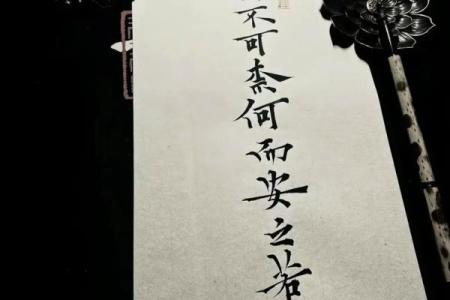 不可柰何而安之若